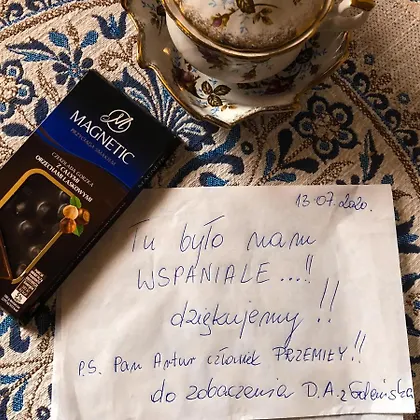 MAGNETIC
PRZYCIĄGA SMAKIEM
CZEKOLADA GORZKA
Z CAŁYMI
ORZECHAMI LASKOWYMI
13.07.2020.
Tu było nam
WSPANIALE....!!
dziękujemy!!
P.S. Pan Artur człowiek PRZEMIŁY!!
do zobaczenia D.A. z Gdańska